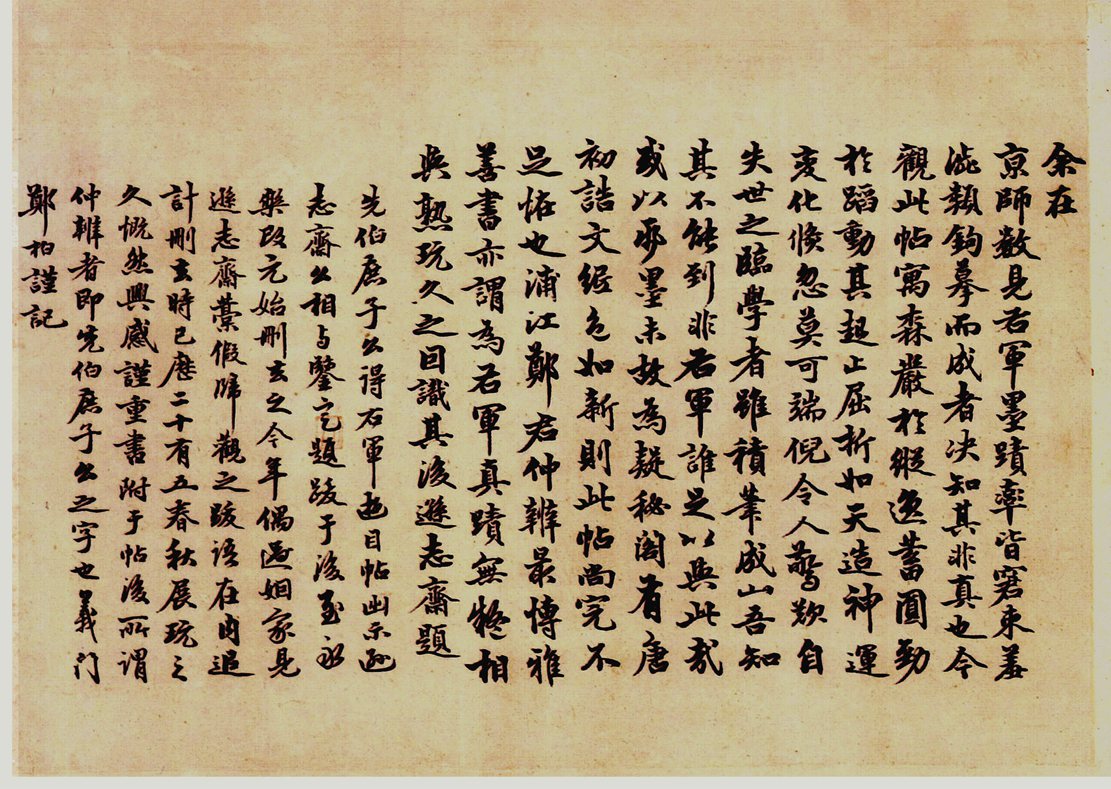 余在
京師數見右軍墨蹟率皆窘束羞
澁類鉤摹而成者决知其非真也今
觀此帖寓森嚴於縱逸蓄圓勁
於蹈動其起止屈折如天造神運
变化倏忽莫可端倪令人驚歎自
失世之臨學者雖積筆成山吾知
其不能到非右軍誰足以與此哉
或以多墨未故為疑秘閣有唐
初誥文經色如新則此帖尚完不
足怪也浦江鄭君仲辨最慱雅
善書亦謂為右軍真蹟無疑相
與熟玩久之因識其後遜志齋題
先伯庶子公得右軍此目帖出示遜
志齋公相与鑒定題跋于後至永
樂改元始刪去之今年偶過姻家見
遜志齋藁假歸觀之跋語在内追
計刪去時已歷二十有五春秋展玩之
久慨然興感謹重書附于帖後所謂
仲辨者即先伯庶子公之字也義门
鄭柏謹記